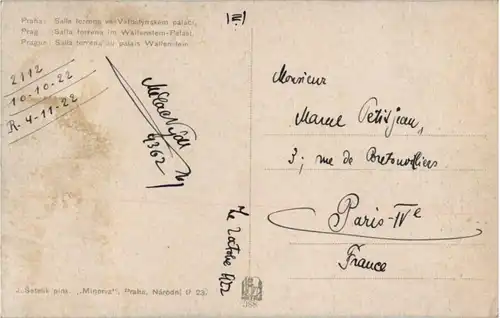 Praha: Salla terrena ve Valdštýnském paláci.
Prag: Salla terrena im Wallenstein-Palast.
Prague: Salla terrena au palais Wallenstein
2112
10-10.22
R-4-11-22
4362
Monsieur
Marcel Petitjean,
3, rue de Bretonvilliers
Paris-IVe
France
J. Šetelík pinx. „Minerva“, Praha, Národní tř 23.
388